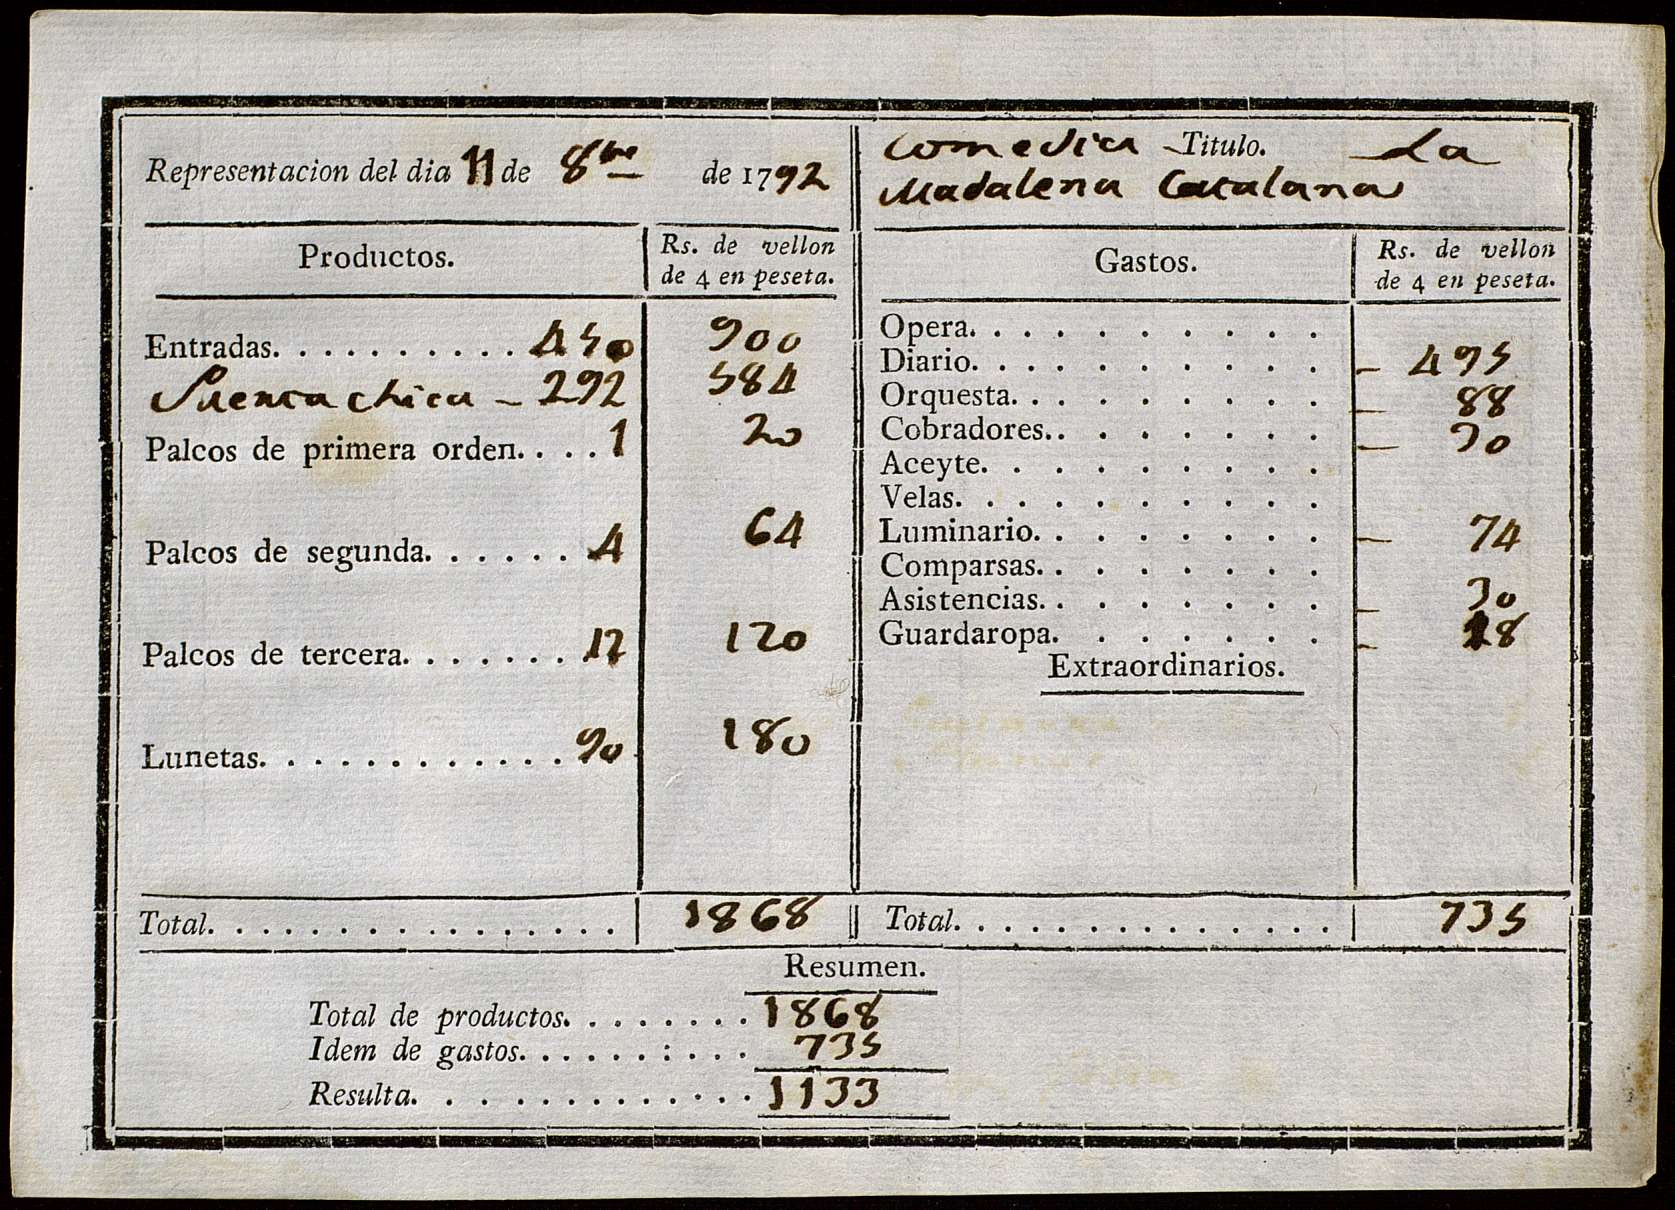 Representacion del dia 11 de 8bre de 1792
Comedia Titulo. La
Madalena Catalana
Productos. Rs. de vellon de 4 en peseta.
Entradas. 450 900
Puerta chica - 292 584
Palcos de primera orden. 1 20
Palcos de segunda. 4 64
Palcos de tercera. 12 120
Lunetas. 90 180
Total. 1868
Gastos. Rs. de vellon de 4 en peseta.
Opera.
Diario. 495
Orquesta. 88
Cobradores. 30
Aceyte.
Velas.
Luminario. 74
Comparsas.
Asistencias. 30
Guardaropa. 18
Extraordinarios.
Total. 735
Resumen.
Total de productos. 1868
Idem de gastos. 735
Resulta. 1133